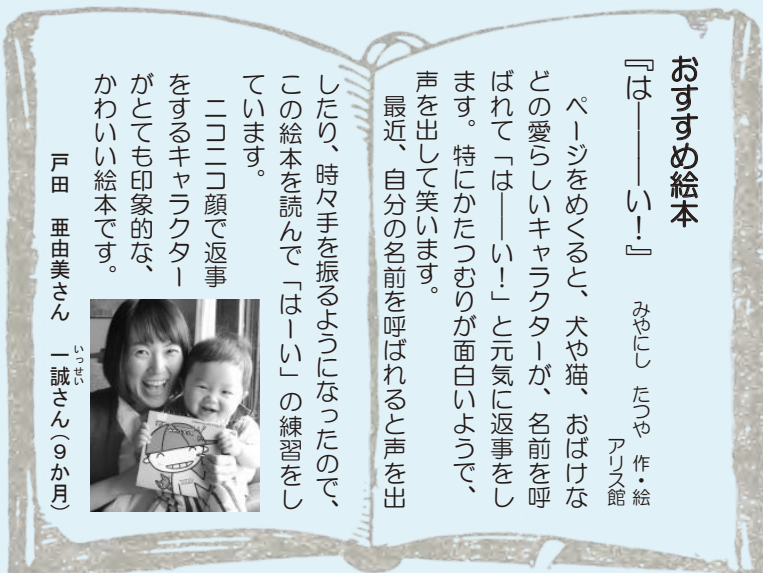 おすすめ絵本
『は———い！』
みやにし　たつや　作・絵
アリス館
ページをめくると、犬や猫、おばけな
どの愛らしいキャラクターが、名前を呼
ばれて「は——い！」と元気に返事をし
ます。特にかたつむりが面白いようで、
声を出して笑います。
最近、自分の名前を呼ばれると声を出
したり、時々手を振るようになったので、
この絵本を読んで「はーい」の練習をし
ています。
ニコニコ顔で返事
をするキャラクター
がとても印象的な、
かわいい絵本です。
戸田　亜由美さん　一誠さん（９か月）
いっせい